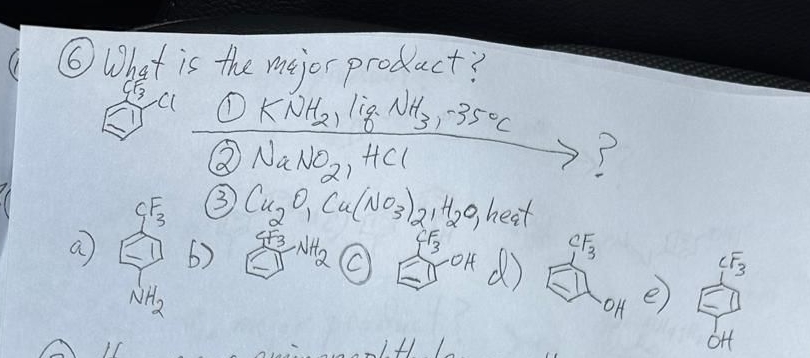 ⑥ What is the major product?
CF₃
Cl
① KNH₂, liq NH₃, -35°C
?
② NaNO₂, HCl
③ Cu₂O, Cu(NO₃)₂, H₂O, heat
a) CF₃ NH₂
b) CF₃ NH₂
ⓒ CF₃ OH
d) CF₃ OH
e) CF₃ OH